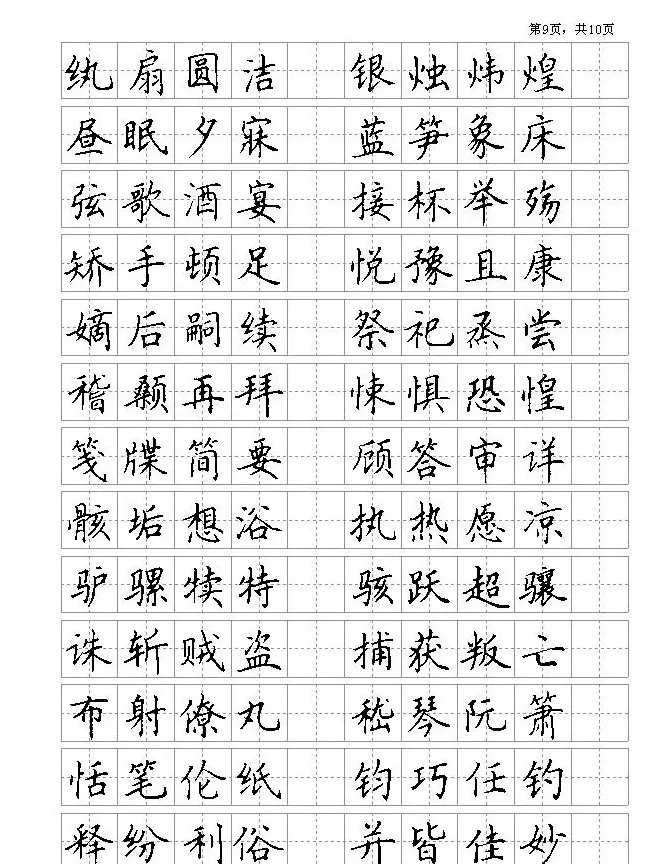 第9页，共10页
纨扇圆洁 银烛炜煌
昼眠夕寐 蓝笋象床
弦歌酒宴 接杯举殇
矫手顿足 悦豫且康
嫡后嗣续 祭祀烝尝
稽颡再拜 悚惧恐惶
笺牒简要 顾答审详
骸垢想浴 执热愿凉
驴骡犊特 骇跃超骧
诛斩贼盗 捕获叛亡
布射僚丸 嵇琴阮箫
恬笔伦纸 钧巧任钓
释纷利俗 并皆佳妙